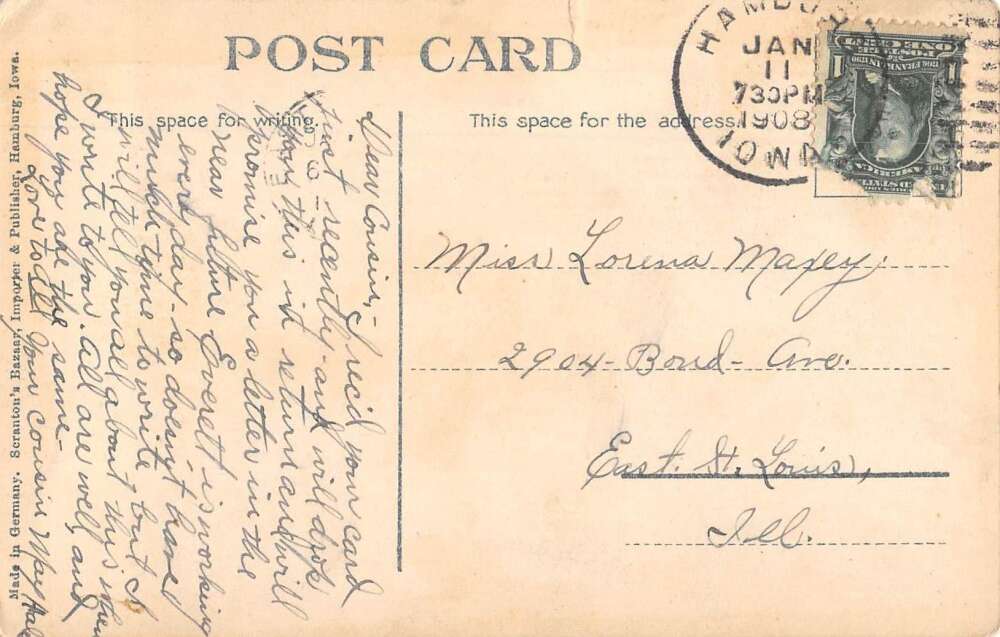 POST CARD
This space for writing.
This space for the address.
HAMBU
JAN
11
730PM
1908
IOWA
ONE CENT
1
1
FRANKLIN
Miss Lorena Maxey.
2904 - Bond - Ave.
East. St. Louis,
Ill.
Dear Cousin,- I rec'd your card
just recently - and will drop
you this in return and will
promise you a letter in the
near future Everett is working
every day - so doesn't have
much time to write but I
will tell you all about this when
I write to you. All are well, and
hope you are the same -
Love to all Your cousin May
Made in Germany. Scranton's Bazaar, Importer & Publisher, Hamburg, Iowa.